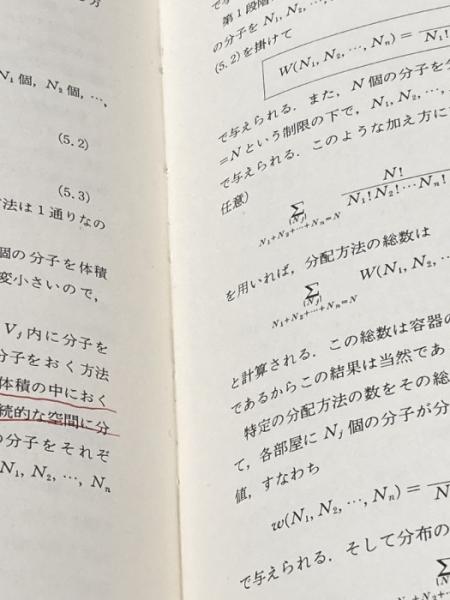 N₁ 個, N₂ 個, …,
(5.2)
(5.3)
法は1通りなの
個の分子を体積
変小さいので,
V_j 内に分子を
分子をおく方法
体積の中におく
続的な空間に分
の分子をそれぞ
N₁, N₂, …, N_n
第1段階
の分子を N₁, N₂, …,
(5.2) を掛けて
W(N₁, N₂, …, N_n) = N₁!
で与えられる. また, N 個の分子を
=N という制限の下で, N₁, N₂, …,
で与えられる. このような加え方に
任意)
∑ N! / N₁! N₂! … N_n!
{N_j}
N₁+N₂+…+N_n=N
を用いれば, 分配方法の総数は
∑ W(N₁, N₂, …
{N_j}
N₁+N₂+…+N_n=N
と計算される. この総数は容器の
であるからこの結果は当然であ
特定の分配方法の数をその総
て, 各部屋に N_j 個の分子が分
値, すなわち
w(N₁, N₂, …, N_n) =
で与えられる. そして分布の
∑
{N_j}